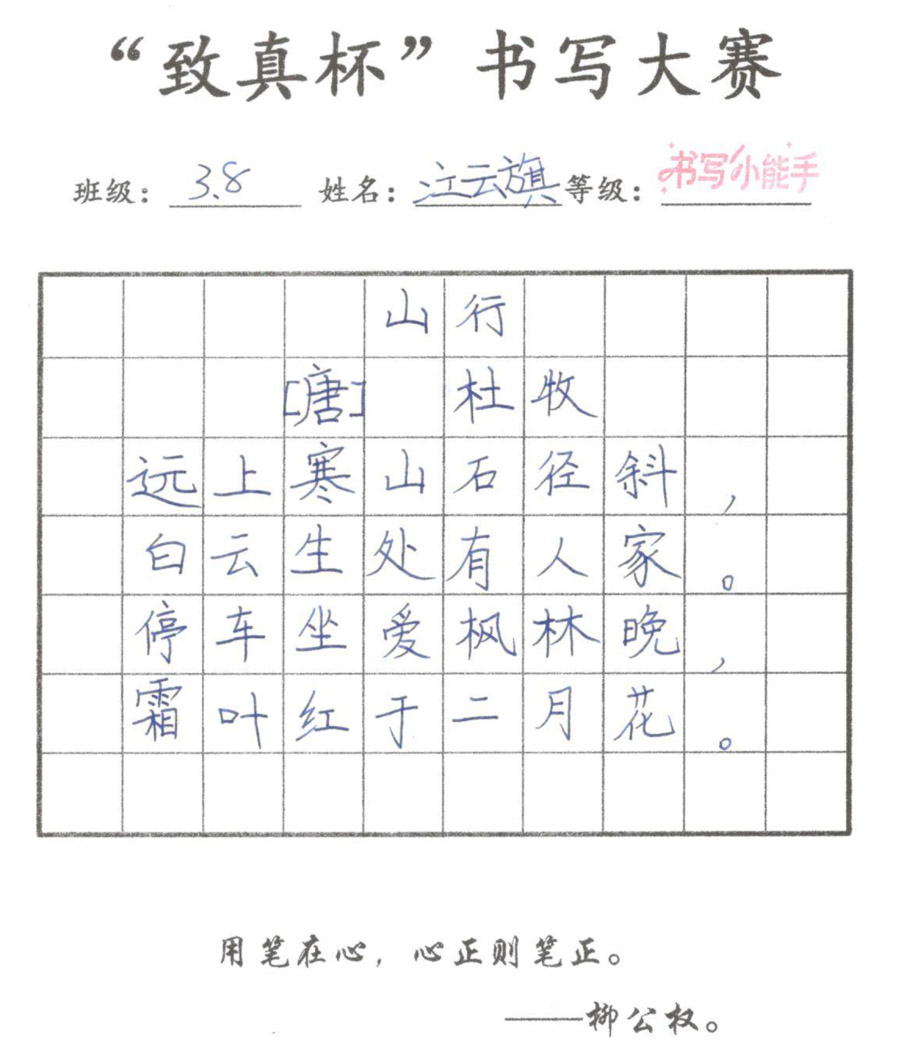 “致真杯”书写大赛
班级：3.8 姓名：江云旗 等级：书写小能手
山行
[唐] 杜牧
远上寒山石径斜，
白云生处有人家。
停车坐爱枫林晚，
霜叶红于二月花。
用笔在心，心正则笔正。
——柳公权。